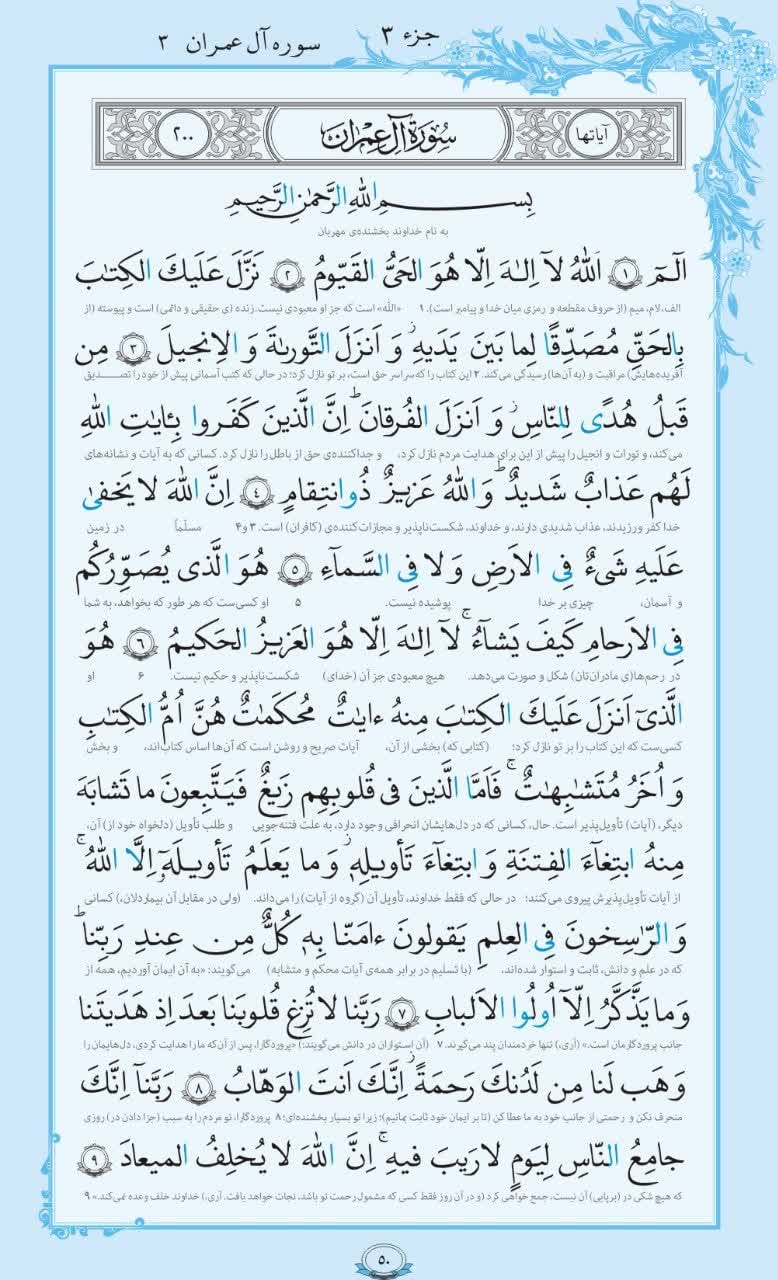 جزء ۳
سوره آل عمران ۳
آیاتها
سُورَةُ آلِ عِمرٰان
۲۰۰
بِسمِ اللهِ الرَّحمٰنِ الرَّحیمِ
به نام خداوند بخشنده‌ی مهربان
الٓمٓ ﴿۱﴾ اَللهُ لآ اِلـٰهَ اِلّا هُوَ الحَیُّ القَیّومُ ﴿۲﴾ نَزَّلَ عَلَیكَ الكِتٰبَ
الف، لام، میم (از حروف مقطعه و رمزی میان خدا و پیامبر است). ۱ «الله» است که جز او معبودی نیست. زنده (ی حقیقی و دائمی) است و پیوسته (از
بِالحَقِّ مُصَدِّقًا لِما بَینَ یَدَیهِ وَ اَنزَلَ التَّوراةَ وَ الاِنجیلَ ﴿۳﴾ مِن
آفریده‌هایش) مراقبت و (به آن‌ها) رسیدگی می‌کند. ۲ این کتاب را که سراسر حق است، بر تو نازل کرد؛ در حالی که کتب آسمانی پیش از خود را تصدیق
قَبلُ هُدًی لِلنّاسِ وَ اَنزَلَ الفُرقانَ ۗ اِنَّ الَّذینَ كَفَروا بِـٔایٰتِ اللهِ
می‌کند، و تورات و انجیل را پیش از این برای هدایت مردم نازل کرد، و جداکننده‌ی حق از باطل را نازل کرد. کسانی که به آیات و نشانه‌های
لَهُم عَذابٌ شَدیدٌ ۗ وَ اللهُ عَزیزٌ ذُوانتِقامٍ ﴿۴﴾ اِنَّ اللهَ لا یَخفیٰ
خدا کفر ورزیدند، عذاب شدیدی دارند، و خداوند، شکست‌ناپذیر و مجازات‌کننده‌ی (کافران) است. ۳ و ۴ مسلّماً در زمین
عَلَیهِ شَیءٌ فِی الاَرضِ وَ لا فِی السَّمآءِ ﴿۵﴾ هُوَ الَّذی یُصَوِّرُكُم
و آسمان، چیزی بر خدا پوشیده نیست. ۵ او کسی‌ست که هر طور که بخواهد، به شما
فِی الاَرحامِ كَیفَ یَشآءُ ۚ لآ اِلـٰهَ اِلّا هُوَ العَزیزُ الحَكیمُ ﴿۶﴾ هُوَ
در رحم‌ها(ی مادران‌تان) شکل و صورت می‌دهد. هیچ معبودی جز آن (خدای) شکست‌ناپذیر و حکیم نیست. ۶ او
الَّذیٓ اَنزَلَ عَلَیكَ الكِتٰبَ مِنهُ ءایٰتٌ مُحكَمٰتٌ هُنَّ اُمُّ الكِتٰبِ
کسی‌ست که این کتاب را بر تو نازل کرد؛ (کتابی که) بخشی از آن، آیات صریح و روشن است که آن‌ها اساس کتاب‌اند، و بخش
وَ اُخَرُ مُتَشٰبِهٰتٌ ۚ فَاَمَّا الَّذینَ فی قُلوبِهِم زَیغٌ فَیَتَّبِعونَ ما تَشابَهَ
دیگر، (آیات) تأویل‌پذیر است. حال، کسانی که در دل‌هایشان انحرافی وجود دارد، به علت فتنه‌جویی و طلب تأویل (دلخواه خود از) آن،
مِنهُ ابتِغآءَ الفِتنَةِ وَ ابتِغآءَ تَأویلِهٖ ۗ وَ ما یَعلَمُ تَأویلَهٗٓ اِلَّا اللهُ ۚ
از آیات تأویل‌پذیرش پیروی می‌کنند؛ در حالی که فقط خداوند، تأویل آن (گروه از آیات) را می‌داند. (ولی در مقابل آن بیماردلان،) کسانی
وَ الرّاسِخونَ فِی العِلمِ یَقولونَ ءامَنّا بِهٖ كُلٌّ مِن عِندِ رَبِّنا ۗ
که در علم و دانش، ثابت و استوار شده‌اند، (با تسلیم در برابر همه‌ی آیات محکم و متشابه) می‌گویند: «به آن ایمان آوردیم، همه از
وَ ما یَذَّكَّرُ اِلّآ اُولُوا الاَلبابِ ﴿۷﴾ رَبَّنا لا تُزِغ قُلوبَنا بَعدَ اِذ هَدَیتَنا
جانب پروردگارمان است.» (آری،) تنها خردمندان پند می‌گیرند. ۷ (آن استواران در دانش می‌گویند:) «پروردگارا، پس از آن‌که ما را هدایت کردی، دل‌هایمان را
وَ هَب لَنا مِن لَدُنكَ رَحمَةً ۚ اِنَّكَ اَنتَ الوَهّابُ ﴿۸﴾ رَبَّنآ اِنَّكَ
منحرف نکن و رحمتی از جانب خود به ما عطا کن (تا بر ایمان خود ثابت بمانیم)؛ زیرا تو بسیار بخشنده‌ای؛ ۸ پروردگارا، تو مردم را به سبب (جزا دادن در) روزی
جامِعُ النّاسِ لِیَومٍ لا رَیبَ فیهِ ۚ اِنَّ اللهَ لا یُخلِفُ المیعادَ ﴿۹﴾
که هیچ شکی در (برپایی) آن نیست، جمع خواهی کرد (و در آن روز فقط کسی که مشمول رحمت تو باشد، نجات خواهد یافت. آری،) خداوند خلف وعده نمی‌کند.» ۹
۵۰